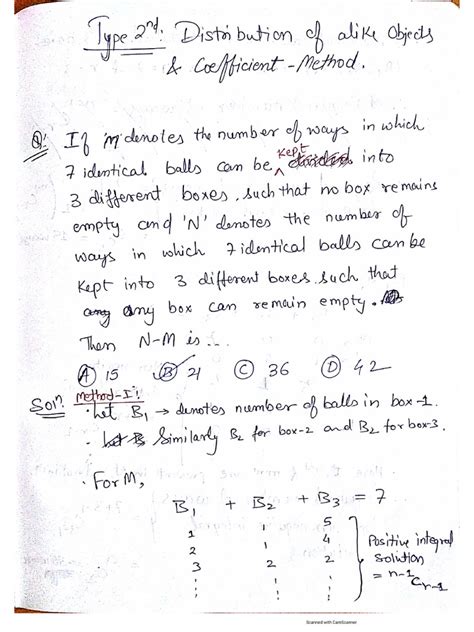 Type 2nd: Distribution of alike Objects
& Coefficient-Method.
Q: If 'M' denotes the number of ways in which
7 identical balls can be kept into
3 different boxes, such that no box remains
empty and 'N' denotes the number of
ways in which 7 identical balls can be
kept into 3 different boxes such that
any box can remain empty.
Then N-M is ...
(A) 15 (B) 21 (C) 36 (D) 42
Soln. Method-I:
· Let B1 → denotes number of balls in box-1.
· Similarly B2 for box-2 and B2 for box-3.
· For M,
B1 + B2 + B3 = 7
1 1 5
2 1 4
3 2 2
⋮ ⋮ ⋮
Positive integral
solution
= n-1Cr-1
Scanned with CamScanner